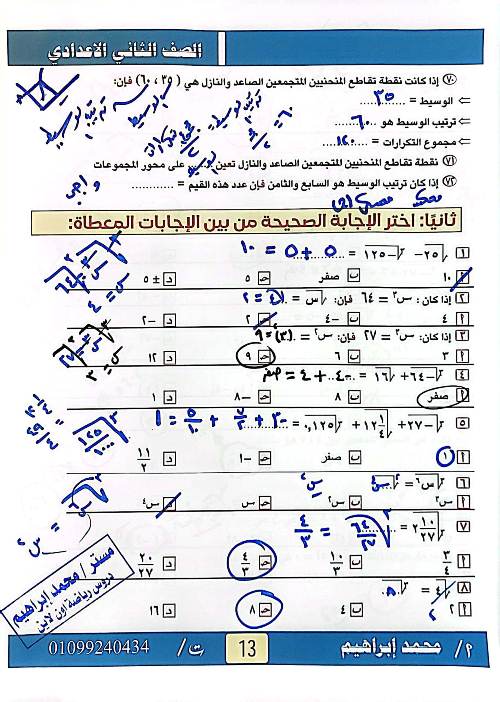 الصف الثاني الاعدادي
٧٠ إذا كانت نقطة تقاطع المنحنيين المتجمعين الصاعد والنازل هي (٣٥ ، ٦٠) فإن:
⇐ الوسيط = ٣٥
⇐ ترتيب الوسيط هو ٦٠
⇐ مجموع التكرارات = ١٢٠
٧١ نقطة تقاطع المنحنيين المتجمعين الصاعد والنازل تعين ........ على محور المجموعات
٧٢ إذا كان ترتيب الوسيط هو السابع والثامن فإن عدد هذه القيم = ............
واجب
ثانيًا: اختر الإجابة الصحيحة من بين الإجابات المعطاة:
١ √٢٥ - ∛-١٢٥ = ٥ + ٥ = ١٠
أ ١٠ ب صفر جـ ٥ د ± ٥
٢ إذا كان: س٣ = ٦٤ فإن: √س = √٤ = ٢
أ ٤ ب -٤ جـ ٢ د -٢
٣ إذا كان: س٣ = ٢٧ فإن: س٢ = (٣)٢ = ٩
أ ٣ ب ٦ جـ ٩ د ١٢
٤ ∛-٦٤ + √١٦ = -٤ + ٤ = صفر
أ صفر ب ٨ جـ -٨ د ١
٥ ∛-٢٧ + √١٢ ١/٤ + ∛٠,١٢٥ = -٣ + ٧/٢ + ٥/١٠ = ١
أ ١ ب صفر جـ -١ د ١١/٢
٦
أ س٢ ب س٢ جـ س د س٤
٧ ∛٢ ١٠/٢٧ = ∛٦٤/٢٧ = ٤/٣
أ ٣/٤ ب ١٠/٣ جـ ٤/٣ د ٢٠/٢٧
٨ √٤ = ∛٨
أ ٢ ب ٤ جـ ٨ د ١٦
مستر / محمد إبراهيم
دروس رياضة اون لاين
م/ محمد إبراهيم 13 ت/ 01099240434